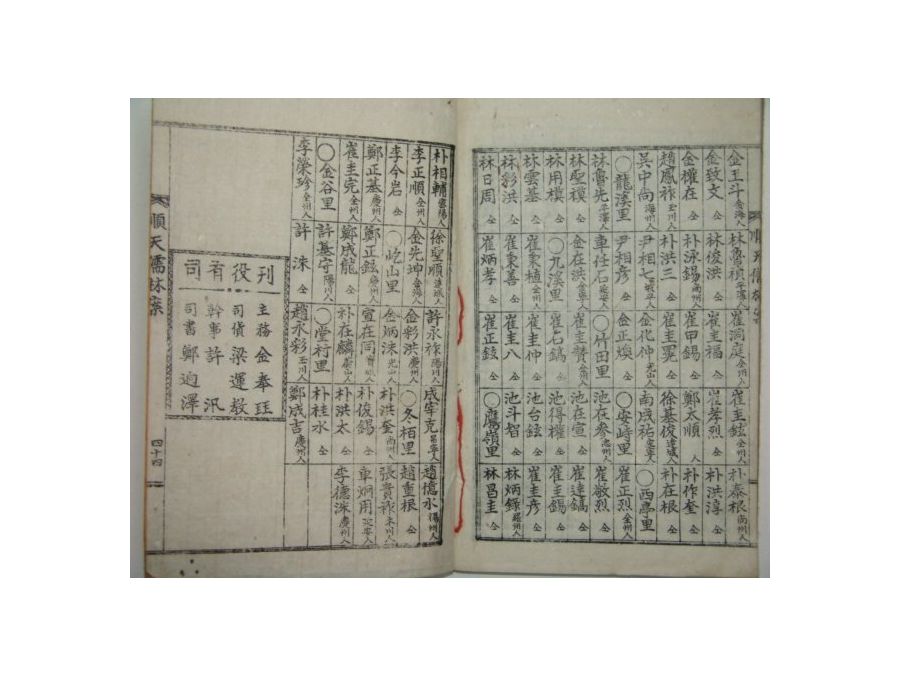 金王斗 金海人
金致文 仝
金權在 仝
趙鳳祚 玉川人
吳中尚 海州人
○龍溪里
林魯光 平澤人
林聖模 仝
林用模 仝
林雲基 仝
林彩洪 仝
林日周 仝
林魯禎 平澤人
林俊洪 仝
朴泳錫 尚州人
朴洪三 仝
尹相七 坡平人
尹相彦 仝
車任石 延安人
金在洪 金寧人
○九溪里
崔秉植 全州人
崔秉善 仝
崔炳孝 仝
崔洞庭 全州人
崔圭福 仝
崔甲錫 仝
崔圭翼 仝
金化仲 光山人
金正煥 仝
○竹田里
崔圭贊 全州人
崔石鎬 仝
崔圭仲 仝
崔圭八 仝
崔正鉉 仝
崔圭鉉 全州人
崔孝烈 仝
鄭太順 人
徐基俊 達城人
南成祐 宜寧人
○安峙里
池在參 忠州人
池在宣 仝
池得權 仝
池台鉉 仝
池斗智 仝
○鷹嶺里
朴泰根 尚州人
朴洪淳 仝
朴作奎 仝
朴在根 仝
○西亭里
崔正烈 全州人
崔敞烈 仝
崔達鎬 仝
崔圭錫 仝
崔圭彦 仝
林炳錄 羅州人
林昌圭 仝
順天儒林案
朴相輔 密陽人
李正順 全州人
李今岩 仝
鄭正基 慶州人
崔圭完 全州人
○金谷里
李榮珍 全州人
徐聖順 達城人
金先坤 金海人
○屹山里
鄭正鉉 慶州人
鄭成龍 仝
許基守 陽川人
許洙 仝
許永祚 陽川人
金彩洪 慶州人
金炳洙 光山人
宣在同 寶城人
朴在麟 蔚山人
○堂村里
趙永彩 玉川人
成宰克 昌寧人
○冬栢里
朴洪奎 尚州人
朴俊錫 仝
朴洪太 仝
朴桂水 仝
鄭成吉 慶州人
趙億永 陽州人
趙重根 仝
張貴祚 木川人
車炯用 延安人
李德洙 慶州人
刊役有司
主務 金奉珏
司貨 梁運毅
幹事 許汎
司書 鄭迥澤
順天儒林案
四十四